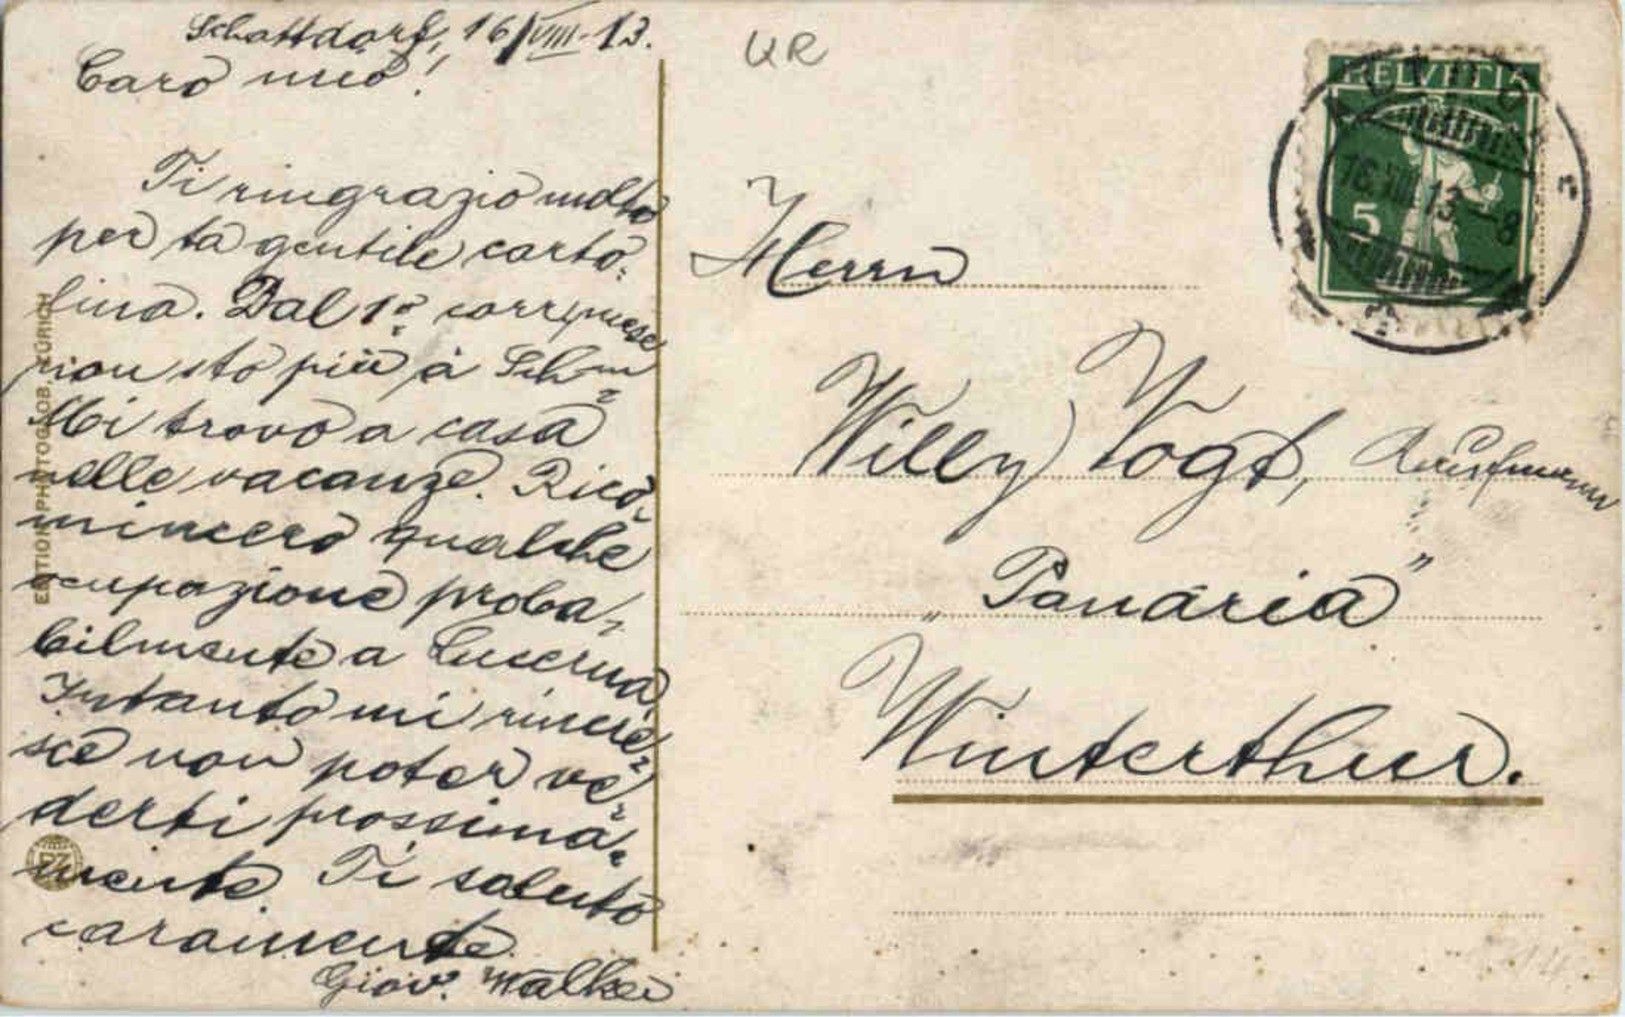 Schattdorf, 16/VIII-13.
Caro mio!
Ti ringrazio molto
per ta gentile carto-
lina. Dal 1º corr mese
non sto più à Schm
Mi trovo a casa
nelle vacanze. Rico-
mincerò qualche
ocupazione proba-
bilmente a Lucerna
Intanto mi rincre-
sce non poter ve-
derti prossima-
mente. Ti saluto
caramente
Giov. Walker
EDITION PHOTOGLOB, ZÜRICH
PZ
UR
HELVETIA
5
16.VIII.13-8
Herrn
Willy Vogt, Kaufmann
„Panaria"
Winterthur.